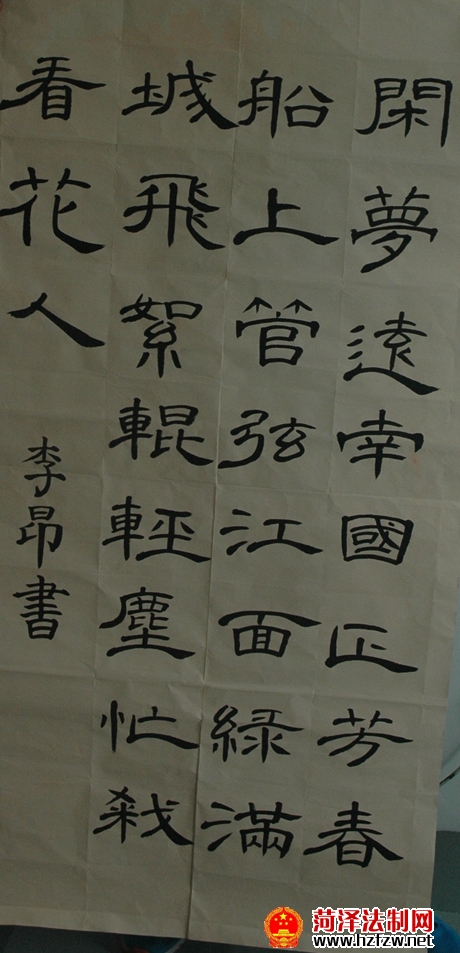 閑夢遠幸國正芳春
船上管弦江面綠滿
城飛絮輥輕塵忙殺
看花人
李昂書
菏泽法制网
www.hzfzw.net